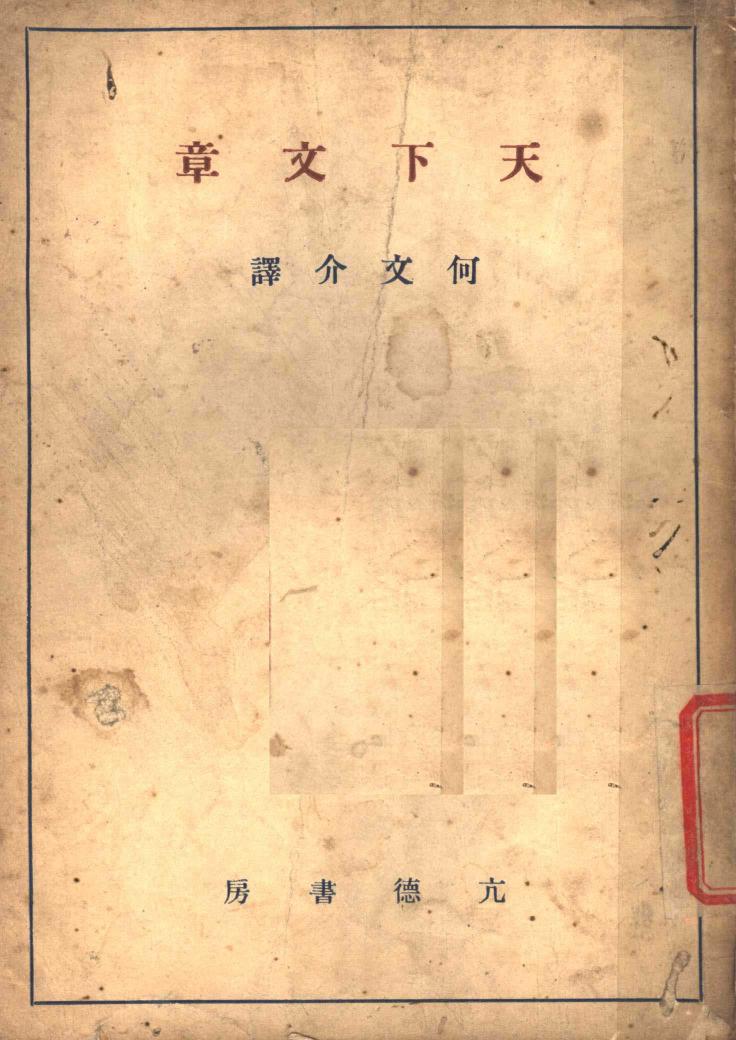 天下文章
何文介譯
亢德書房